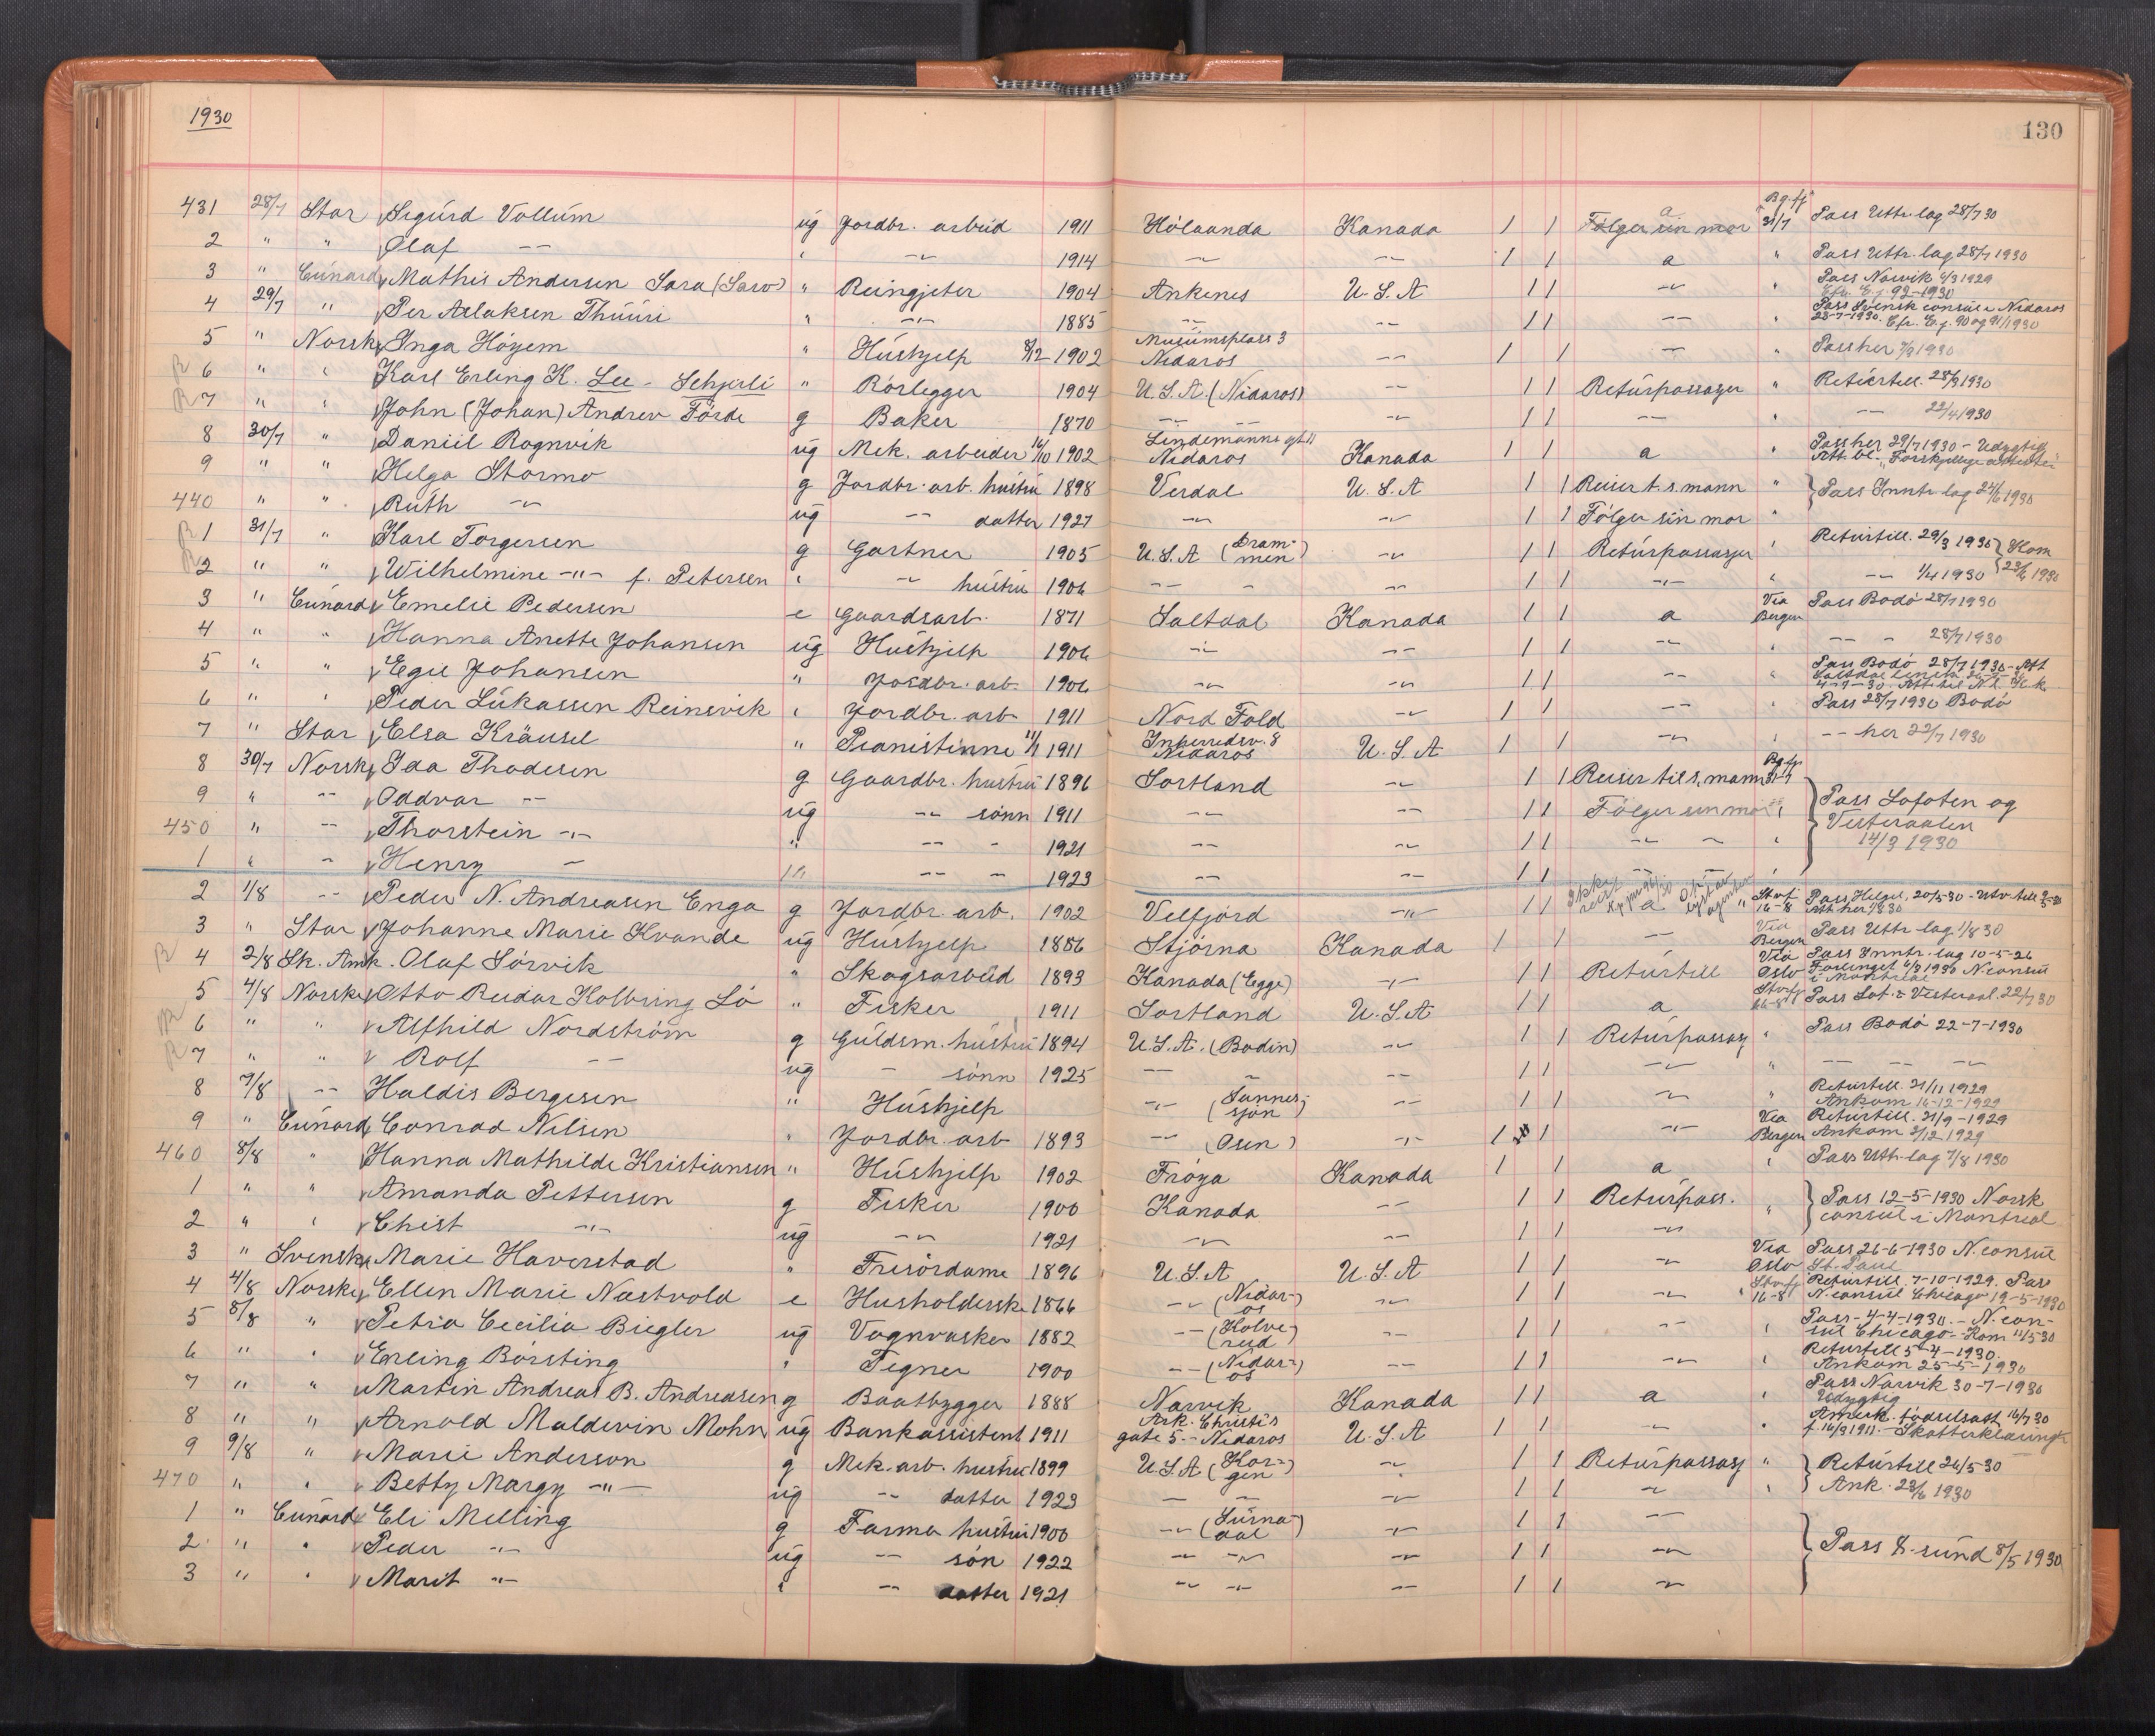 1930
130
431 28/7 Star Sigurd Vollum ug Jordbr. arbeid 1911 Hölaanda Kanada 1 1 Følger sin mor a Bg.fj 31/7 Pass Uttr. lag 28/7 30
2 " " Olaf -"- " -"- 1914 -"- -"- 1 1 a " Pass Uttr. lag 28/7 1930
3 " Cunard Mathis Andersen Sara (Sarv) " Reingjeter 1904 Ankenes U.S.A 1 1 -"- " Pass Narvik 4/3 1929 Efr. E.j. 92-1930
4 29/7 " Per Aslaksen Thuuri " -"- 1885 -"- -"- 1 1 -"- " Pass Svensk consul i Nidaros 28-7-1930. Cfr. E.j. 90 og 91/1930
5 " Norske Inga Höyem " Húshjelp 8/12 1902 Museumsplass 3 Nidaros -"- 1 1 -"- " Pass her 1930
R 6 " " Karl Erling K. Lee - Schjerli " Rörlegger 1904 U.S.A. (Nidaros) -"- 1 1 Retúrpassasjer " Retúrtill. 28/3 1930
R 7 " " John (Johan) Andrew Förde g Baker 1870 -"- -"- 1 1 -"- " -"- 22/4 1930
8 30/7 " Daniel Rognvik ug Mek. arbeider 16/10 1902 Lindemanns gt 11 Nidaros Kanada 1 1 a " Pass her 29/7 1930 - Udygtig Att. bl. Forskjellige attester
9 " " Helga Stormo g Jordbr. arb. hústru 1898 Verdal U.S.A 1 1 Reiser t. s. mann " Pass Inntr. lag 24/6 1930
440 " " Ruth -"- ug -"- datter 1927 -"- -"- 1 1 Følger sin mor "
R 1 31/7 " Karl Torgersen g Gartner 1905 U.S.A (Drammen) -"- 1 1 Retúrpassasjer " Retúrtill. 29/3 1930 Kom 23/6 1930
R 2 " " Wilhelmine -"- f. Petersen " -"- hústru 1906 -"- - -"- 1 1 -"- " -"- 1/4 1930
3 " Cunard Emelie Pedersen e Gaardsarb. 1871 Saltdal Kanada 1 1 a Via Bergen Pass Bodö 28/7 1930
4 " " Hanna Anette Johansen ug Húshjelp 1906 -"- -"- 1 1 -"- " -"- - 28/7 1930
5 " " Egil Johansen " Jordbr. arb. 1906 -"- -"- 1 1 -"- " Pass Bodö 28/7 1930 - Att
6 " " Peder Lúkassen Reinsvik " Jordbr. arb 1911 Nord Fold -"- 1 1 -"- " Pass 28/7 1930 Bodö
7 " Star Elsa Kräusel " Pianistinne 11/1 1911 Innherredsv. 8 Nidaros U.S.A 1 1 -"- " -"- her 22/7 1930
8 30/7 Norske Ida Thodesen g Gaardbr. hustru 1896 Sortland -"- 1 1 Reiser til s. mann Bg.fj 31-7 Pass Lofoten og Vesteraalen 14/3 1930
9 " -"- Oddvar -"- ug -"- sönn 1911 -"- -"- 1 1 Følger sin mor "
450 " -"- Thorstein -"- " -"- - 1921 -"- -"- 1 1 -"- - "
1 " -"- Henry - " -"- - 1923 -"- -"- 1 1 -"- - "
2 1/8 -"- Peder N. Andreasen Enga g Jordbr. arb. 1902 Velfjord -"- 1 1 Ikke reist a Storfj 16-8 Pass Helgel. 20/5-30 - Utv. till.
3 " Star Johanne Marie Kvande ug Húshjelp 1886 Stjörna Kanada 1 1 -"- Via Bergen Pass Uttr. lag. 1/8 30
R 4 2/8 Sk. Amk. Olaf Sörvik " Skogsarbeid 1893 Kanada (Egge) -"- 1 1 Retúrtill Via Oslo Pass Inntr. lag 10-5-26 Forlenget 4/3 1930 N. consul i Montreal
5 4/8 Norske Otto Reidar Kolbring Lö " Fisker 1911 Sortland U.S.A 1 1 a Storfj 16-8 Pass Lof. & Vesteraal. 22/7 30
R 6 " " Alfhild Nordström g Gúldsm. hústru 1894 U.S.A. (Bodin) -"- 1 1 Retúrpassasj " Pass Bodö 22-7-1930
R 7 " " Rolf -"- ug - sönn 1925 -"- - -"- 1 1 -"- " -"- -"- -"-
8 7/8 -"- Haldis Bergesen " Húshjelp -"- (Tunnsjön) -"- 1 1 -"- " Retúrtill. 21/11 1929 Ankom 16-12-1929
9 " Cunard Conrad Nilsen " Jordbr. arb 1893 -"- (Osen) -"- 1 1 -"- Via Bergen Retúrtill. 21/9-1929 Ankom 3/12 1929
460 8/8 " Hanna Mathilde Kristiansen " Húshjelp 1902 Fröya Kanada 1 1 a " Pass Uttr. lag 7/8 1930
1 " " Amanda Pettersen g Fisker 1900 Kanada -"- 1 1 Retúrpass. " Pass 12-5-1930 Norsk consúl i Montreal
2 " " Chist -"- ug -"- 1921 -"- -"- 1 1 -"-
3 " Svenske Marie Haverstad " Frisördame 1896 U.S.A U.S.A 1 1 -"- Via Oslo Pass 26-6-1930 N. consul St. Paul
4 4/8 Norske Ellen Marie Næstvold e Husholderske 1866 -"- (Nidaros) -"- 1 1 -"- Storfj 16-8 Retúrtill. 7-10-1929. Pass N. consúl Chicago 19-5-1930
5 8/8 " Petra Cecilia Biegler ug Vognvasker 1882 -"- (Kolvereid) -"- 1 1 -"- " Pass-4-4-1930 - N. consul Chicago - Kom 11/5 30
6 " " Erling Börsting " Tegner 1900 -"- (Nidaros) -"- 1 1 -"- " Retúrtill 5-4-1930. Ankom 25-5-1930
7 " " Martin Andreas B. Andreasen g Baatbygger 1888 Narvik Kanada 1 1 a " Pass Narvik 30-7-1930 Udygtig
8 " " Arnold Maldevin Mohn ug Bankassistent 1911 Ark. Christis gate 5 - Nidaros U.S.A 1 1 -"- " Amerik. födselsatt 16/7 30 f. 16/3 1911. - Skatterklæring
9 9/8 " Marie Anderson g Mek. arb. hustru 1899 U.S.A (Korgen) -"- 1 1 Retúrpassasj " Retúrtill 26/5-30 Ank. 23/6 1930
470 " " Betty Margy -"- ug -"- datter 1923 -"- - -"- 1 1 -"- "
1 " Cunard Eli Melling g Farmer hústru 1900 -"- (Súrnadal) -"- 1 1 -"- Pass K. sund 8/5 1930
2 " " Peder -"- ug -"- sön 1922 -"- -"- -"- 1 1 -"-
3 " " Marit -"- " -"- datter 1921 -"- -"- -"- 1 1 -"-